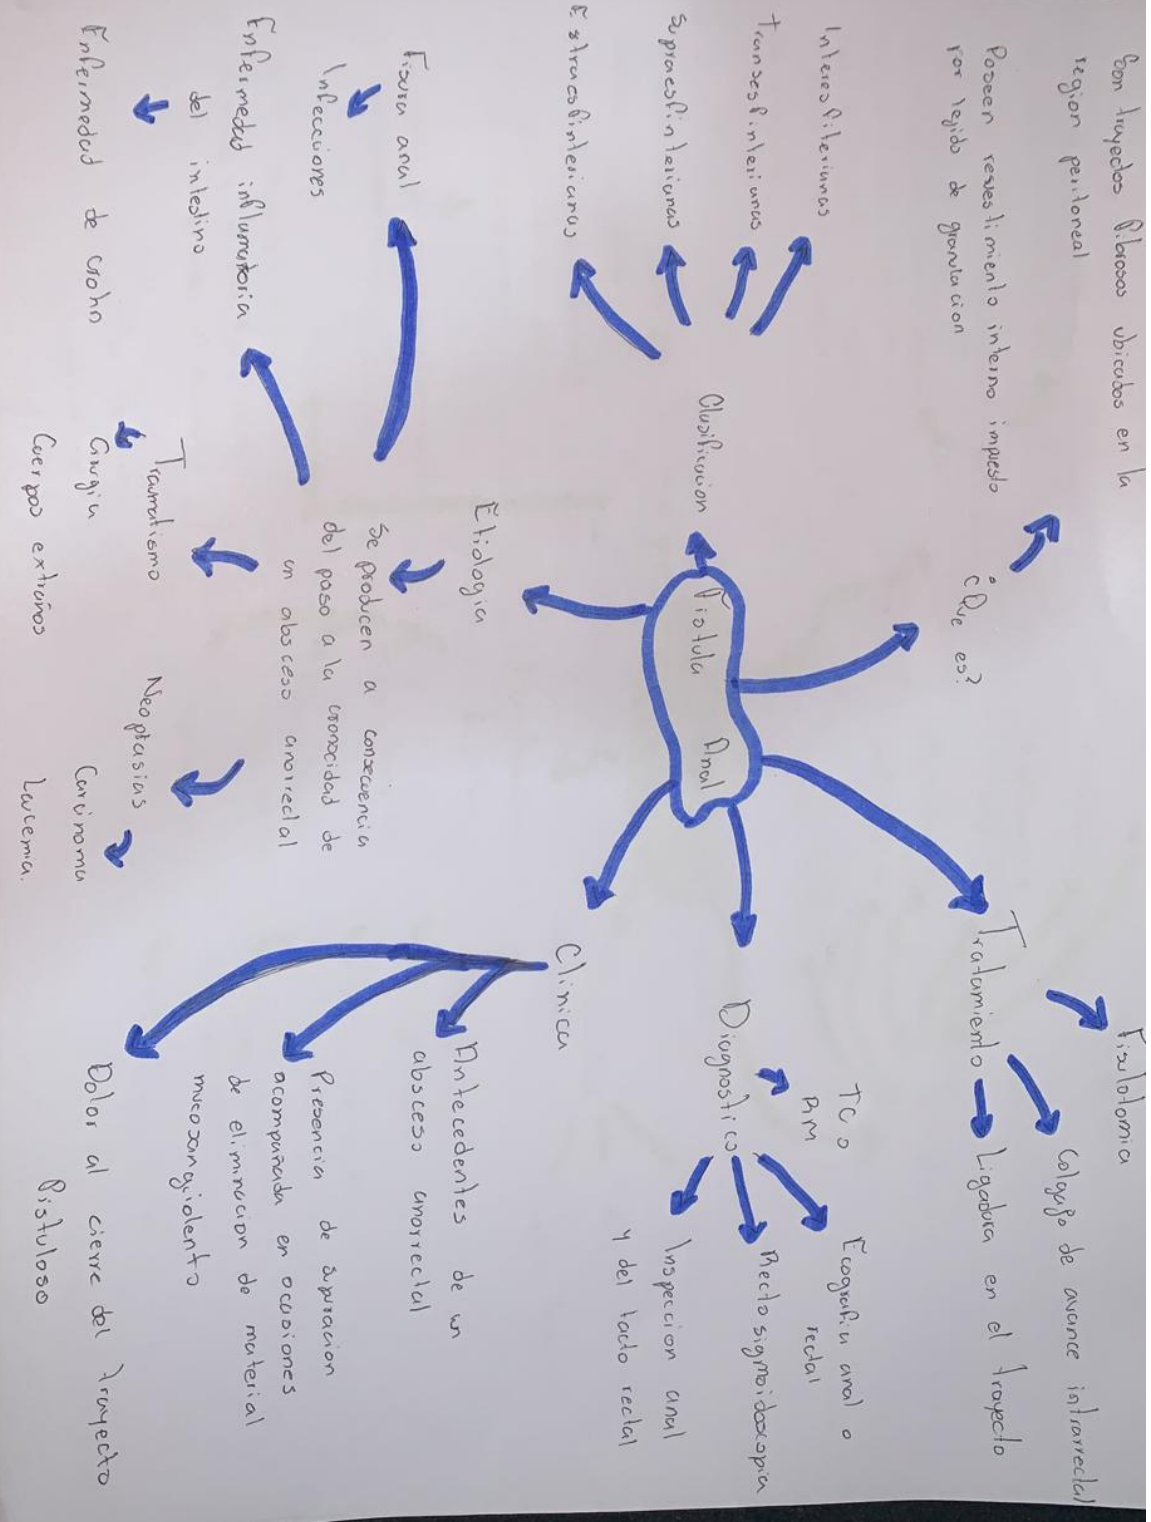 Fistula Anal
¿Que es?
Son trayectos fibrosos ubicados en la
region peritoneal
Poseen revestimiento interno impuesto
por tejido de granulacion
Clasificacion
Interesfiterianas
Transesfinterianas
Supraesfinterianas
Extraesfinterianas
Etiologia
Se producen a consecuencia
del paso a la cronocidad de
un absceso anorrectal
Fisura anal
Infecciones
Enfermedad inflamatoria
del intestino
Enfermedad de crohn
Traumatismo
Cirugia
Cuerpos extraños
Neoplasias
Carcinoma
Lucemia.
Clinica
Antecedentes de un
absceso anorrectal
Presencia de supuracion
acompañada en ocasiones
de eliminacion de material
mucosangiolento
Dolor al cierre del trayecto
fistuloso
Diagnostico
TC o
RM
Ecografia anal o
rectal
Rectosigmoidoscopia
Inspeccion anal
y del tacto rectal
Tratamiento
Fisulotomia
Colgajo de avance intrarrectal
Ligadura en el trayecto